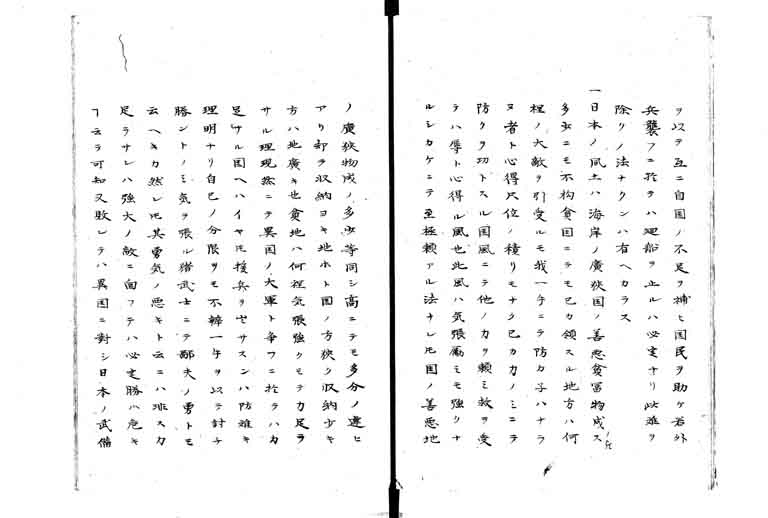 ヲ以テ互ニ自国ノ不足ヲ補ヒ国民ヲ助ケ若外
兵襲フニ於テハ廻船ヲ止ルハ必定ナリ此難ヲ
除クノ法ナクンハ有ヘカラス
一日本ノ風土ハ海岸ノ廣狭国ノ善悪貧冨物成ス
多少ニモ不拘貧国ニテモ己カ領スル地方ハ何
程ノ大敵ヲ引受ルモ我一手ニテ防カ子ハナラ
ヌ者ト心得尺位ノ積リモナク己カ力ノミニテ
防クヲ功トスル国風ニテ他ノ力ヲ頼ミ救ヲ受
テハ辱ト心得ル風也此風ハ気張厲ミモ強クナ
ルシカケニテ至極頼アル法ナレ𪜈国ノ善悪地
ノ廣狭物成ノ多少等同シ高ニテモ多分ノ違ヒ
アリ却テ収納ヨキ地ホト国ノ方狭ク収納少キ
方ハ地廣キ也貧地ハ何程気張強クモテカ足ラ
サル理現然ニテ異国ノ大軍ト争フニ於テハカ
足サル国ヘハイヤモ援兵ヲセサスンハ防難キ
理明ナリ自己ノ分限ヲモ不辨一手ヲ以テ討チ
勝ントノミ気ヲ張ル猪武士ニテ鄙夫ノ勇トモ
云ヘキカ然レ𪜈其勇気ノ悪キト云ニハ非スカ
足ラサレハ強大ノ敵ニ向フテハ必定勝ハ危キ
ヿ云ラ可知又敗レテハ異国ニ對シ日本ノ武備